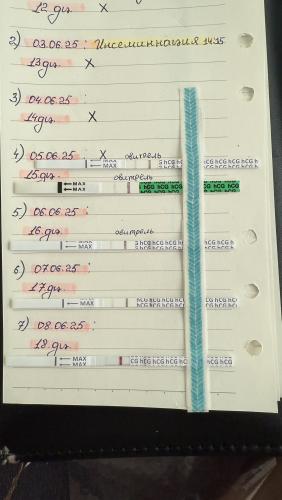 12 дц. X
2) 03.06.25 : Инсеминация 14:15
13 дц. X
3) 04.06.25 :
14 дц. X
4) 05.06.25 : X овитрель
← MAX hCG hCG hCG hCG hCG
← MAX
15 дц.
← MAX hCG hCG hCG hCG hCG
← MAX
5) 06.06.25 :
16 дц. овитрель
← MAX hCG hCG hCG hCG hCG
← MAX
6) 07.06.25 :
17 дц.
← MAX hCG hCG hCG hCG hCG
← MAX
7) 08.06.25 :
18 дц.
← MAX hCG hCG hCG hCG hCG
← MAX